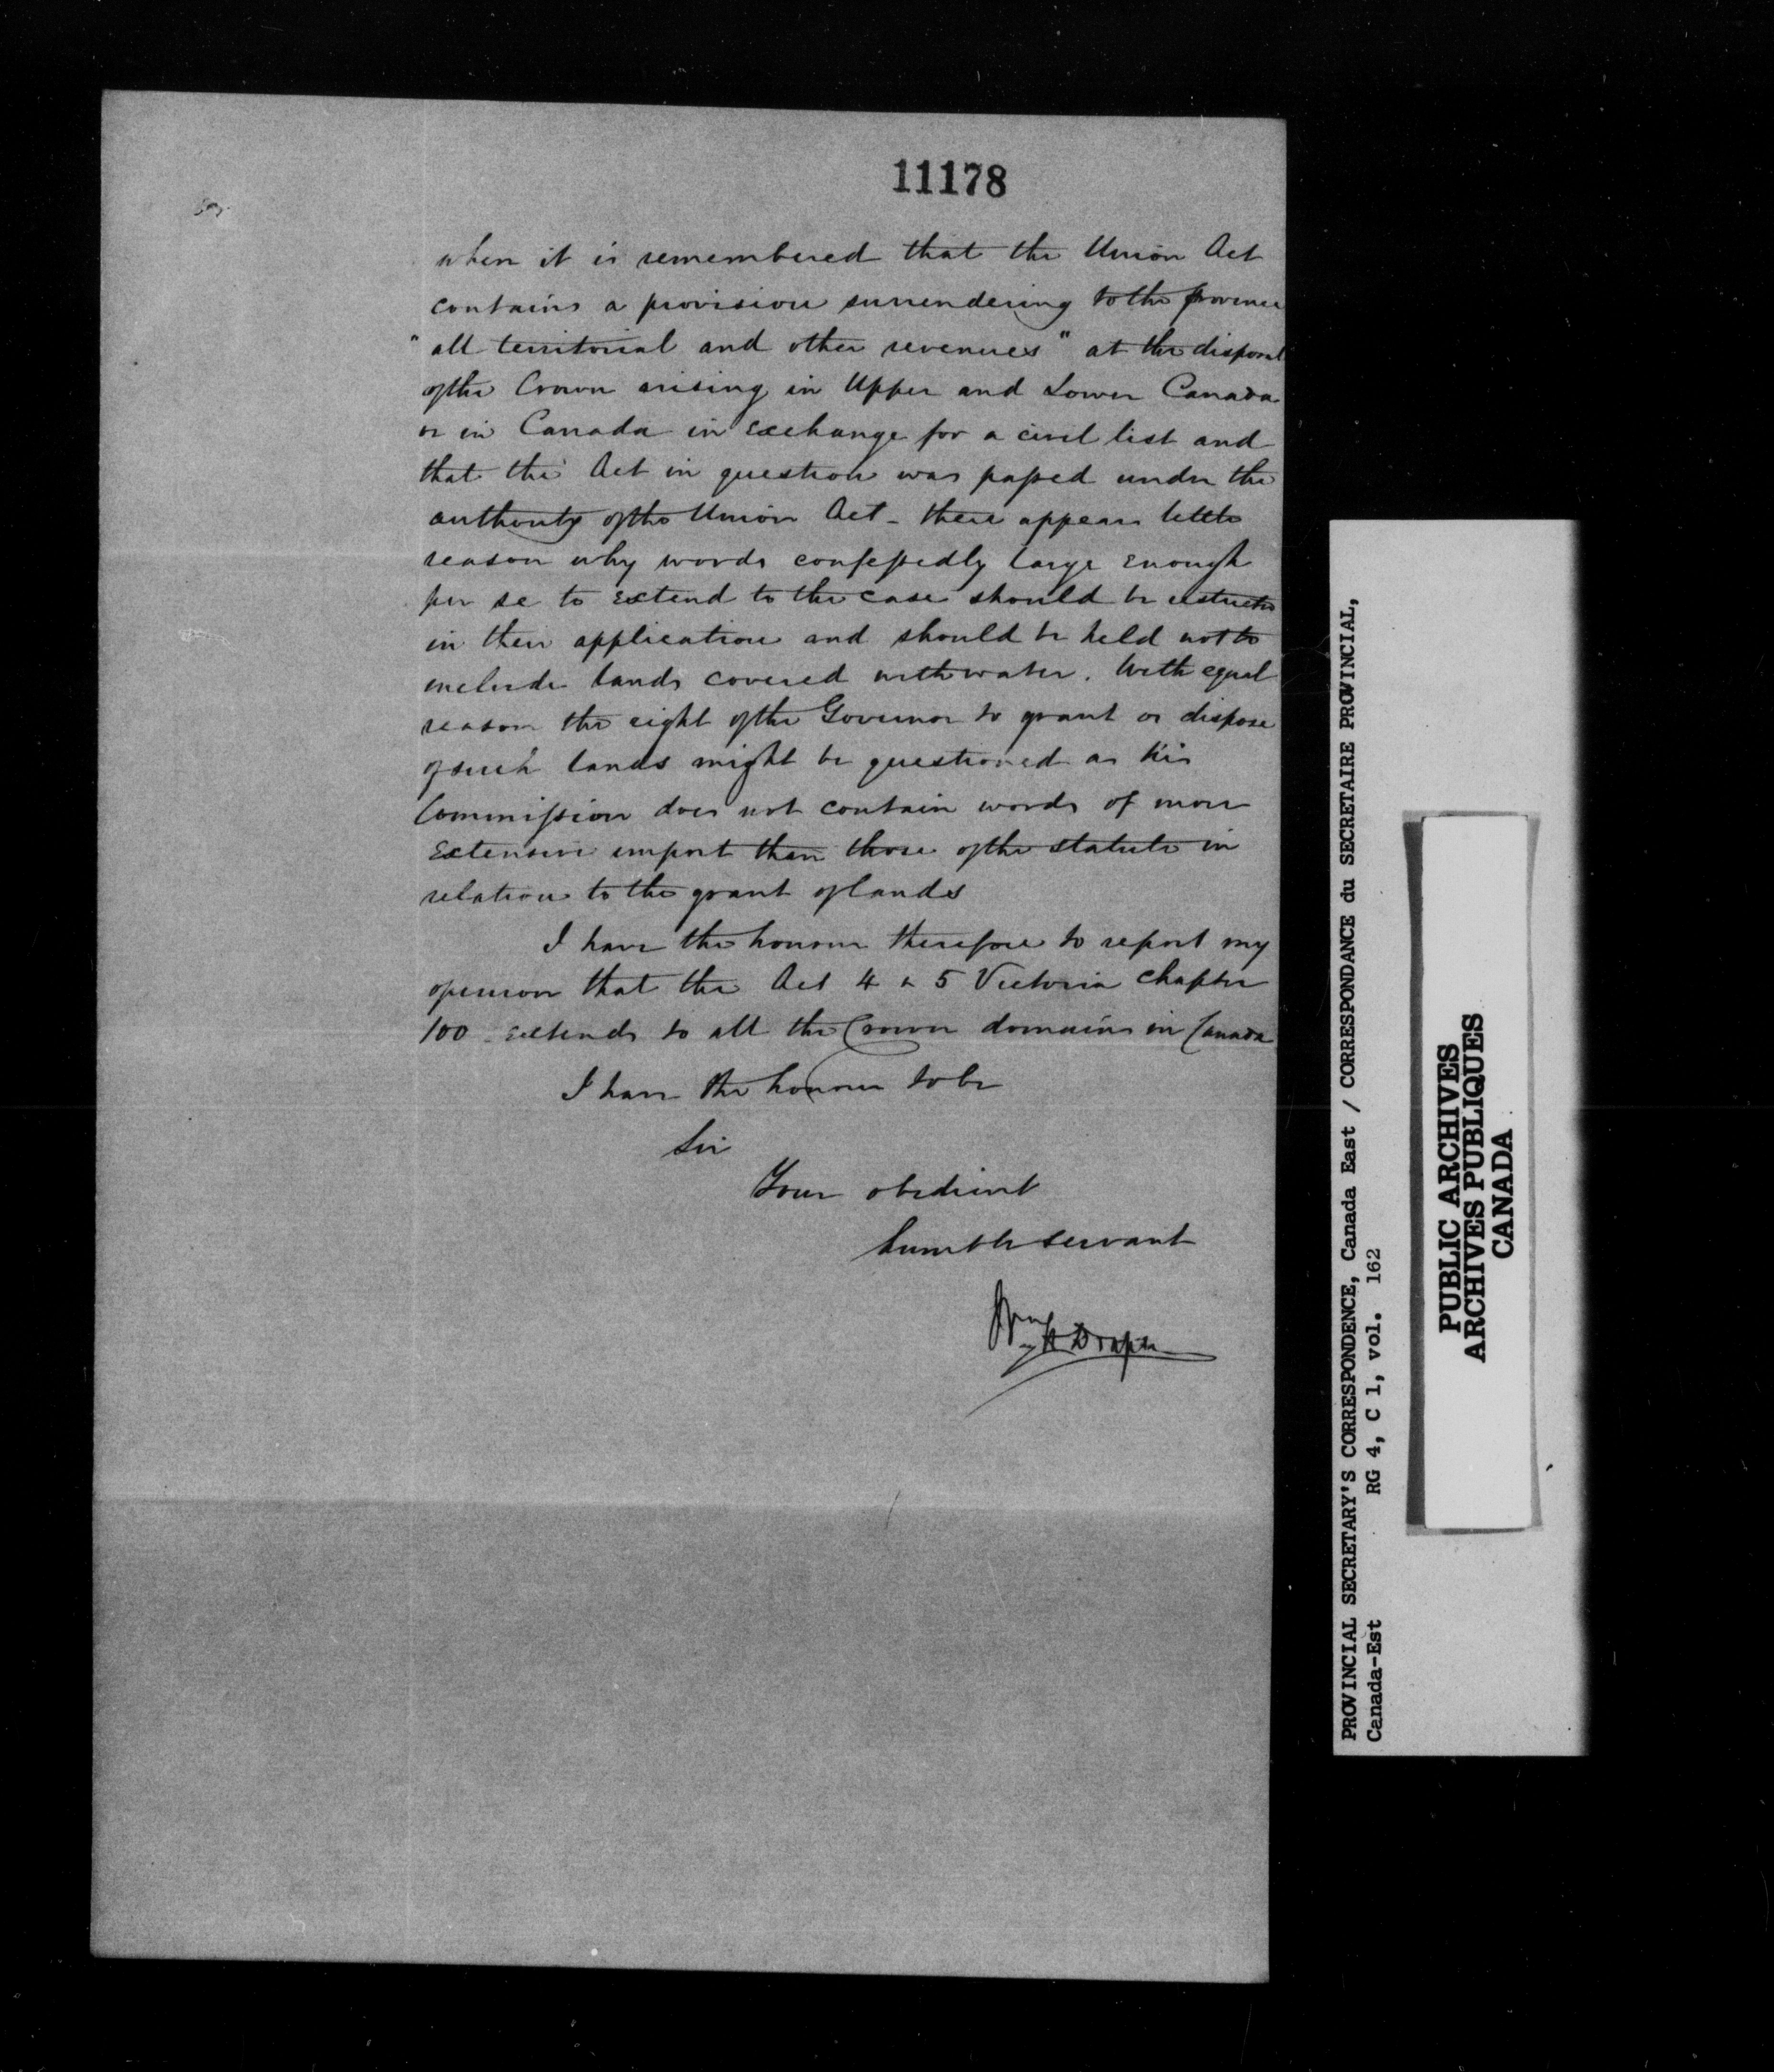 11178
when it is remembered that the Union Act
contains a provision surrendering to the province
"all territorial and other revenues" at the disposal
of the Crown arising in Upper and Lower Canada
or in Canada in exchange for a civil list and
that the Act in question was passed under the
authority of the Union Act - there appears little
reason why words confessedly large enough
per se to extend to the case should be restricted
in their application and should be held not to
include lands covered with water. With equal
reason the right of the Governor to grant or dispose
of such lands might be questioned as his
Commission does not contain words of more
extensive import than those of the statute in
relation to the grant of lands
I have the honour therefore to report my
opinion that the Act 4 & 5 Victoria Chapter
100 extends to all the Crown domains in Canada
I have the honour to be
Sir
Your obedient
humble servant
Wm H Draper
PROVINCIAL SECRETARY'S CORRESPONDENCE, Canada East / CORRESPONDANCE du SECRETAIRE PROVINCIAL,
Canada-Est RG 4, C 1, vol. 162
PUBLIC ARCHIVES
ARCHIVES PUBLIQUES
CANADA